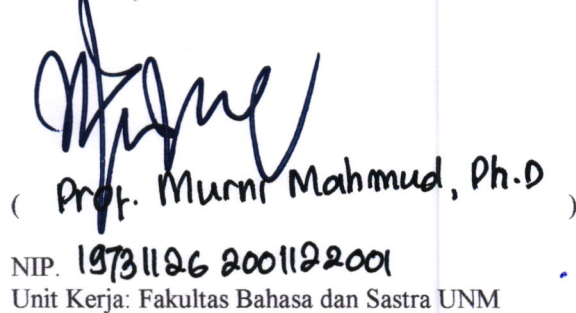 ( Prof. Murni Mahmud, Ph.D )
NIP. 19731126 2001122001
Unit Kerja: Fakultas Bahasa dan Sastra UNM